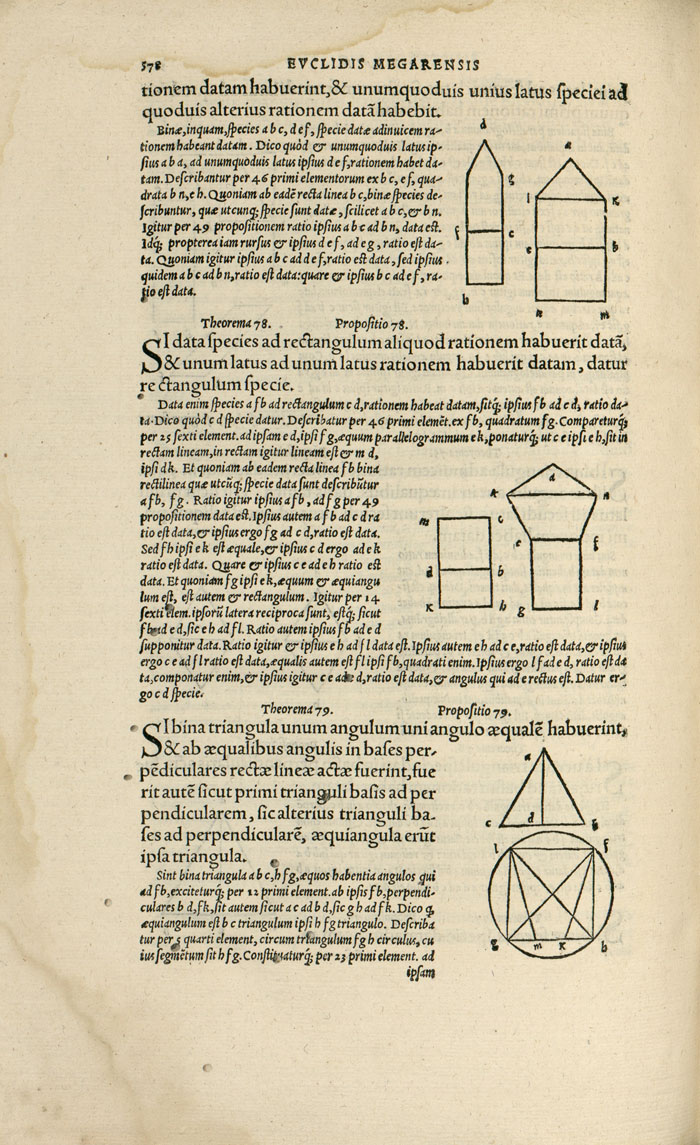 578 EVCLIDIS MEGARENSIS
tionem datam habuerint,& unumquoduis unius latus ſpeciei ad
quoduis alterius rationem datā habebit.
Binæ,inquam,ſpecies a b c, d e f, ſpecie datæ adinuicem ra-
tionem habeant datam. Dico quòd & unumquoduis latus ip-
ſius a b a, ad unumquoduis latus ipſius d e f,rationem habet da-
tam. Deſcribantur per 46 primi elementorum ex b c, e f, qua-
drata b n,e h. Quoniam ab eadē recta linea b c,binæ ſpecies de-
ſcribuntur, quæ utcunq; ſpecie ſunt datæ, ſcilicet a b c,& b n.
Igitur per 49 propoſitionem ratio ipſius a b c ad b n, data eſt.
Idq; propterea iam rurſus & ipſius d e f, ad e g, ratio eſt da-
ta. Quoniam igitur ipſius a b c ad d e f,ratio eſt data, ſed ipſius
quidem a b c ad b n,ratio eſt data:quare & ipſius b c ad e f, ra-
tio eſt data.
d
g
f c
b
a
l K
e b
n m
Theorema 78. Propoſitio 78.
SI data ſpecies ad rectangulum aliquod rationem habuerit datā,
& unum latus ad unum latus rationem habuerit datam, datur
re ctangulum ſpecie.
Data enim ſpecies a f b ad rectangulum c d,rationem habeat datam,ſitq; ipſius f b ad c d, ratio da-
ta.Dico quòd c d ſpecie datur. Deſcribatur per 46 primi elemēt. ex f b, quadratum f g. Compareturq;
per 25 ſexti element. ad ipſam e d,ipſi f g,æquum parallelogrammum e k,ponaturq; ut c e ipſi e h,ſit in
rectam lineam,in rectam igitur lineam eſt & m d,
ipſi d k. Et quoniam ab eadem recta linea f b bina
rectilinea quæ utcūq; ſpecie data ſunt deſcribūtur
a f b, f g. Ratio igitur ipſius a f b, ad f g per 49
propoſitionem data eſt. Ipſius autem a f b ad c d ra
tio eſt data,& ipſius ergo f g ad c d,ratio eſt data.
Sed f h ipſi e k eſt æquale,& ipſius c d ergo ad e k
ratio eſt data. Quare & ipſius c e ad e h ratio eſt
data. Et quoniam f g ipſi e k,æquum & æquiangu
lum eſt, eſt autem & rectangulum. Igitur per 14
ſexti elem. ipſorū latera reciproca ſunt, eſtq; ſicut
f b ad e d,ſic e h ad f l. Ratio autem ipſius f b ad e d
ſupponitur data. Ratio igitur & ipſius e h ad f l data eſt. Ipſius autem e h ad c e,ratio eſt data,& ipſius
ergo c e ad f l ratio eſt data,æqualis autem eſt f l ipſi f b,quadrati enim. Ipſius ergo l f ad e d, ratio eſt da
ta,componatur enim,& ipſius igitur c e ad e d,ratio eſt data,& angulus qui ad e rectus eſt. Datur er-
go c d ſpecie.
m c
d b
K h
d
k a
e f
g l
Theorema 79. Propoſitio 79.
SI bina triangula unum angulum uni angulo æqualē habuerint,
& ab æqualibus angulis in baſes per-
pēdiculares rectæ lineæ actæ fuerint,fue
rit autē ſicut primi trianguli baſis ad per
pendicularem, ſic alterius trianguli ba-
ſes ad perpendicularē, æquiangula erūt
ipſa triangula.
Sint bina triangula a b c,h f g,æquos habentia angulos qui
ad f b,exciteturq; per 12 primi element. ab ipſis f b,perpendi-
culares b d,f k,ſit autem ſicut a c ad b d,ſic g h ad f k. Dico q,
æquiangulum eſt b c triangulum ipſi h f g triangulo. Deſcriba
tur per 5 quarti element, circum triangulum f g h circulus, cu
ius ſegmētum ſit h f g. Conſtituaturq; per 23 primi element. ad
ipſam
a
c d
l f
g m K b